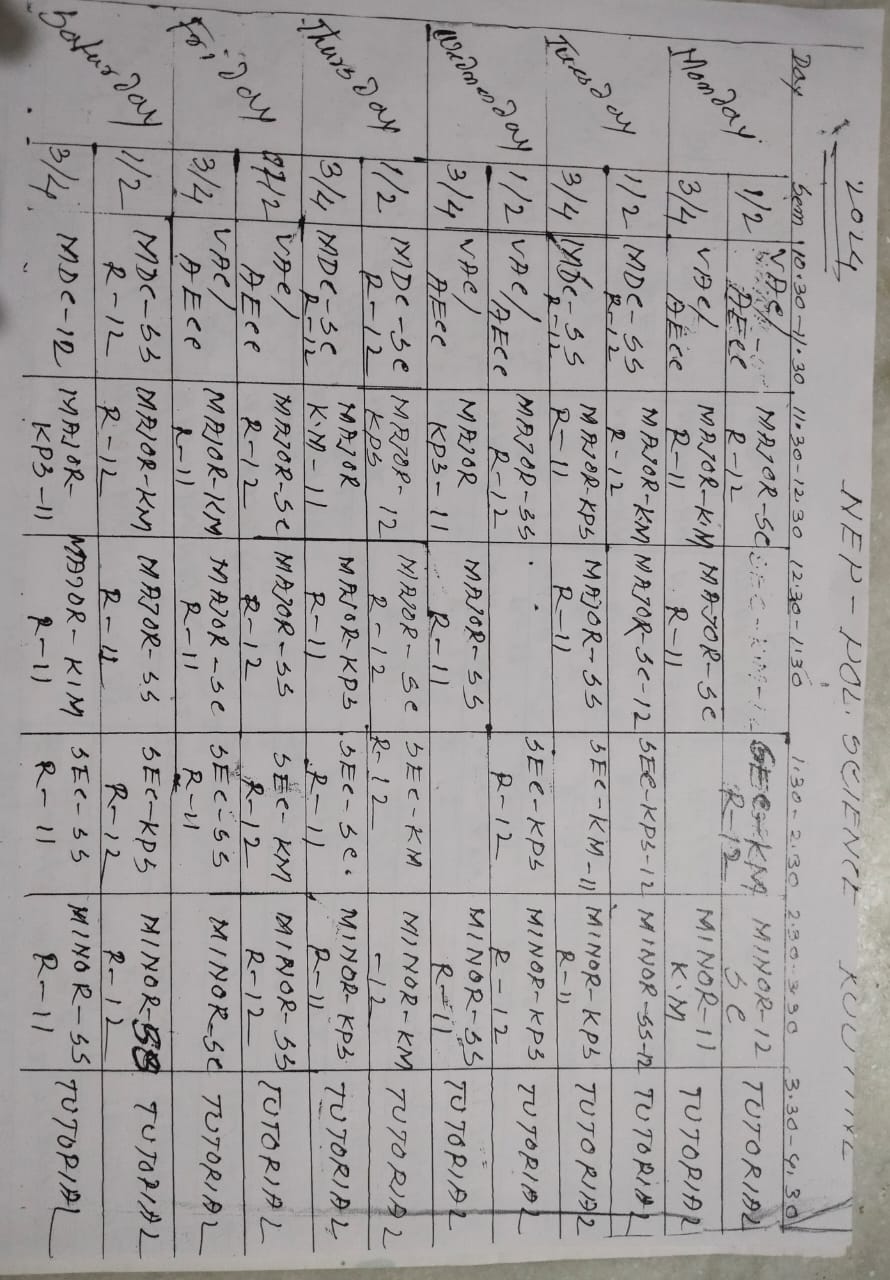 2024 NEP - POL. SCIENCE
Day Sem 10.30-11.30 11.30-12.30 12.30-1.30 1.30-2.30 2.30-3.30 3.30-4.30
Monday 1/2 VAC/ AECC MAJOR-SC R-12 SEC-KM R-12 MINOR-12 SC TUTORIAL
3/4 VAC/ AECC MAJOR-KM R-11 MAJOR-SC R-11 MINOR-11 K.M TUTORIAL
Tuesday 1/2 MDC-SS R-12 MAJOR-KM R-12 MAJOR-SC-12 SEC-KPS-12 MINOR-SS-12 TUTORIAL
3/4 MDC-SS R-12 MAJOR-KPS R-11 MAJOR-SS R-11 SEC-KM-11 MINOR-KPS R-11 TUTORIAL
Widnesday 1/2 VAC/ AECC MAJOR-SS R-12 SEC-KPS R-12 MINOR-KPS R-12 TUTORIAL
3/4 VAC/ AECC MAJOR KPS-11 MAJOR-SS R-11 MINOR-SS R-11 TUTORIAL
Thursday 1/2 MDC-SC R-12 MAJOR-12 KPS MAJOR-SC R-12 SEC-KM R-12 MINOR-KM -12 TUTORIAL
3/4 MDC-SC R-12 MAJOR K.M-11 MAJOR-KPS R-11 SEC-SC. R-11 MINOR-KPS R-11 TUTORIAL
Friday 1/2 VAC/ AECC MAJOR-SC R-12 MAJOR-SS R-12 SEC-KM R-12 MINOR-SS R-12 TUTORIAL
3/4 VAC/ AECC MAJOR-KM R-11 MAJOR-SC R-11 SEC-SS R-11 MINOR-SC TUTORIAL
Saturday 1/2 MDC-SS R-12 MAJOR-KM R-12 MAJOR-SS R-12 SEC-KPS R-12 MINOR- R-12 TUTORIAL
3/4 MDC-12 MAJOR- KPS-11 MAJOR-KM R-11 SEC-SS R-11 MINOR-SS R-11 TUTORIAL